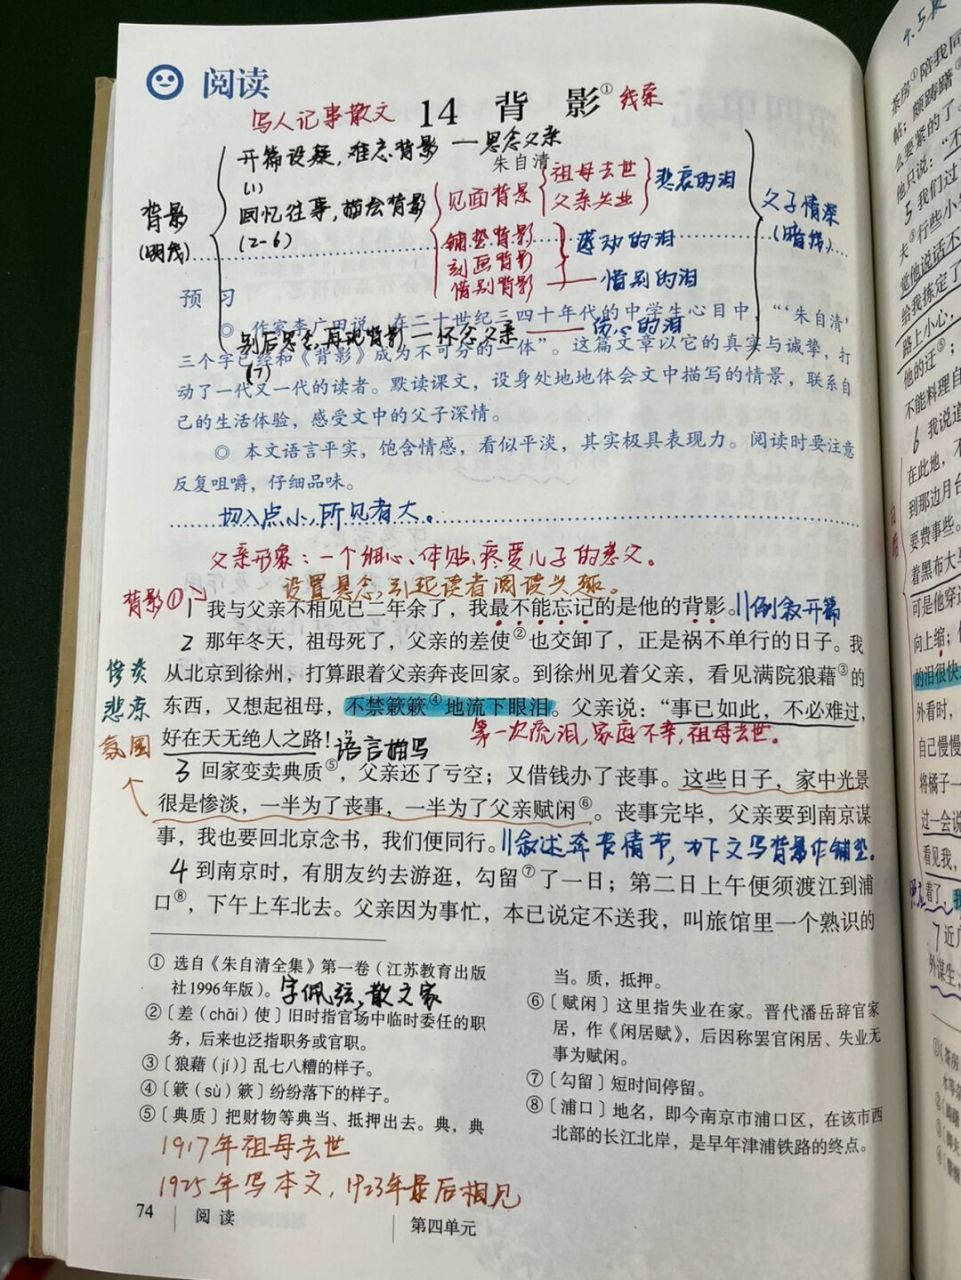 阅读
写人记事散文
14 背 影① 线索
朱自清
背影
(明线)
开篇设疑，难忘背影 — 思念父亲
(1)
回忆往事，描绘背影
(2-6)
见面背景
祖母去世
父亲失业
悲哀的泪
铺垫背影
刻画背影
惜别背影
感动的泪
惜别的泪
别后思念，再现背影 — 怀念父亲 — 伤心的泪
(7)
父子情深
(暗线)
预 习
◎ 作家李广田说，在二十世纪三四十年代的中学生心目中，“‘朱自清’
三个字已经和《背影》成为不可分的一体”。这篇文章以它的真实与诚挚，打
动了一代又一代的读者。默读课文，设身处地地体会文中描写的情景，联系自
己的生活体验，感受文中的父子深情。
◎ 本文语言平实，饱含情感，看似平淡，其实极具表现力。阅读时要注意
反复咀嚼，仔细品味。
切入点小，所见者大。
父亲形象：一个细心、体贴、疼爱儿子的慈父。
设置悬念，引起读者阅读兴趣。
背影①
1 我与父亲不相见已二年余了，我最不能忘记的是他的背影。 ||倒叙开篇
2 那年冬天，祖母死了，父亲的差使②也交卸了，正是祸不单行的日子。我
从北京到徐州，打算跟着父亲奔丧回家。到徐州见着父亲，看见满院狼藉③的
东西，又想起祖母，不禁簌簌④地流下眼泪。父亲说：“事已如此，不必难过，
好在天无绝人之路！ 语言描写
第一次流泪，家庭不幸，祖母去世。
惨淡
悲凉
氛围
3 回家变卖典质⑤，父亲还了亏空；又借钱办了丧事。这些日子，家中光景
很是惨淡，一半为了丧事，一半为了父亲赋闲⑥。丧事完毕，父亲要到南京谋
事，我也要回北京念书，我们便同行。 ||叙述奔丧情节，为下文写背影作铺垫。
4 到南京时，有朋友约去游逛，勾留⑦了一日；第二日上午便须渡江到浦
口⑧，下午上车北去。父亲因为事忙，本已说定不送我，叫旅馆里一个熟识的
① 选自《朱自清全集》第一卷（江苏教育出版
社1996年版）。 字佩弦，散文家
②〔差（chāi）使〕旧时指官场中临时委任的职
务，后来也泛指职务或官职。
③〔狼藉（jí）〕乱七八糟的样子。
④〔簌（sù）簌〕纷纷落下的样子。
⑤〔典质〕把财物等典当、抵押出去。典，典
当。质，抵押。
⑥〔赋闲〕这里指失业在家。晋代潘岳辞官家
居，作《闲居赋》，后因称罢官闲居、失业无
事为赋闲。
⑦〔勾留〕短时间停留。
⑧〔浦口〕地名，即今南京市浦口区，在该市西
北部的长江北岸，是早年津浦铁路的终点。
1917年祖母去世
1925年写本文，1923年最后相见
74 阅 读
第四单元
茶房①陪我同
帖；颇踌躇②
么要紧的了。
他只说：“不
5 我们过
夫③行些小
觉他说话不
给我拣定了
路上小心，
他的迂⑤；
不能料理自
6 我说道
在此地，不
到那边月台
要费事些。
着黑布大马
可是他穿过
向上缩；
的泪很快
外看时，
自己慢慢
将橘子一
过一会说
看见我，
着了，我
7 近
外谋生，